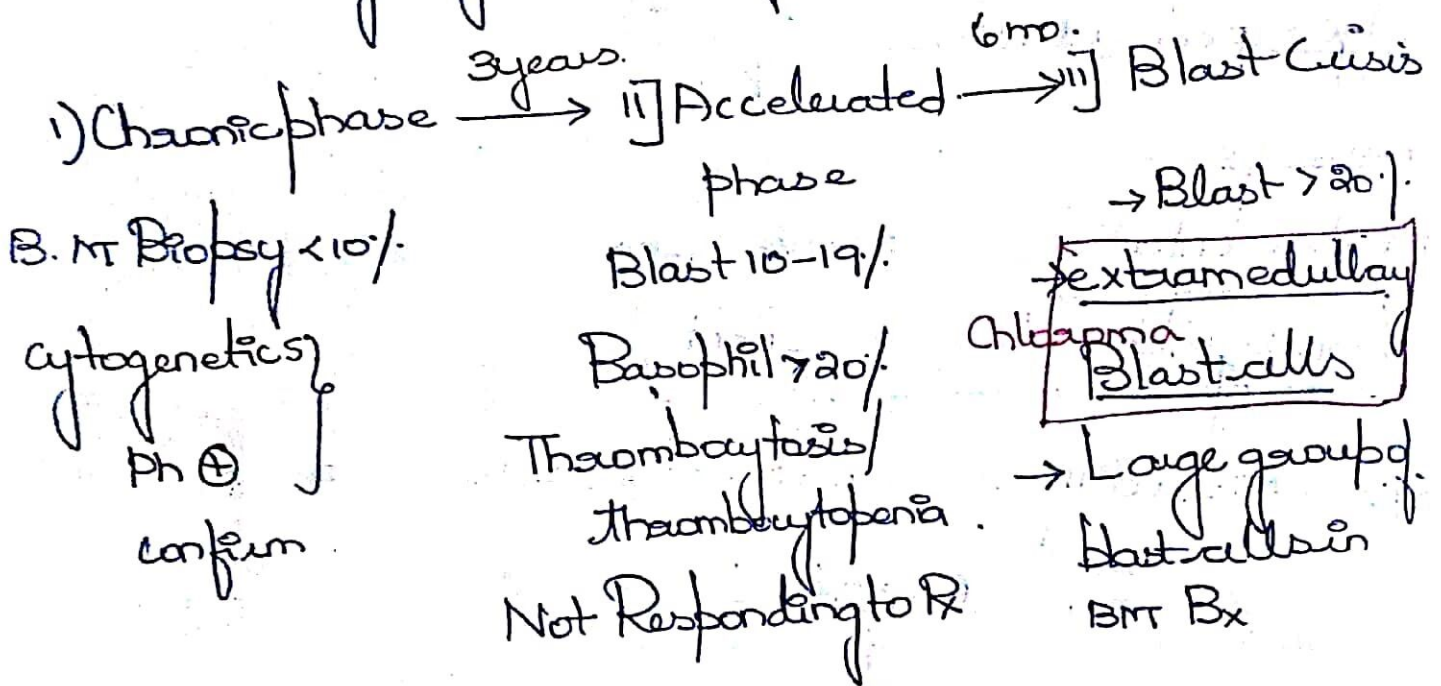 1) Chronic phase 3years. → II] Accelerated phase 6mo. → III] Blast Crisis
B.M Biopsy <10%
cytogenetics }
Ph ⊕
confirm
Blast 10-19%
Basophil >20%
Thrombocytosis/
thrombocytopenia.
Not Responding to Rx
→ Blast >20%
→ extramedullay
Chloroma
Blast cells
→ Large group of
blast cells in
BM Bx